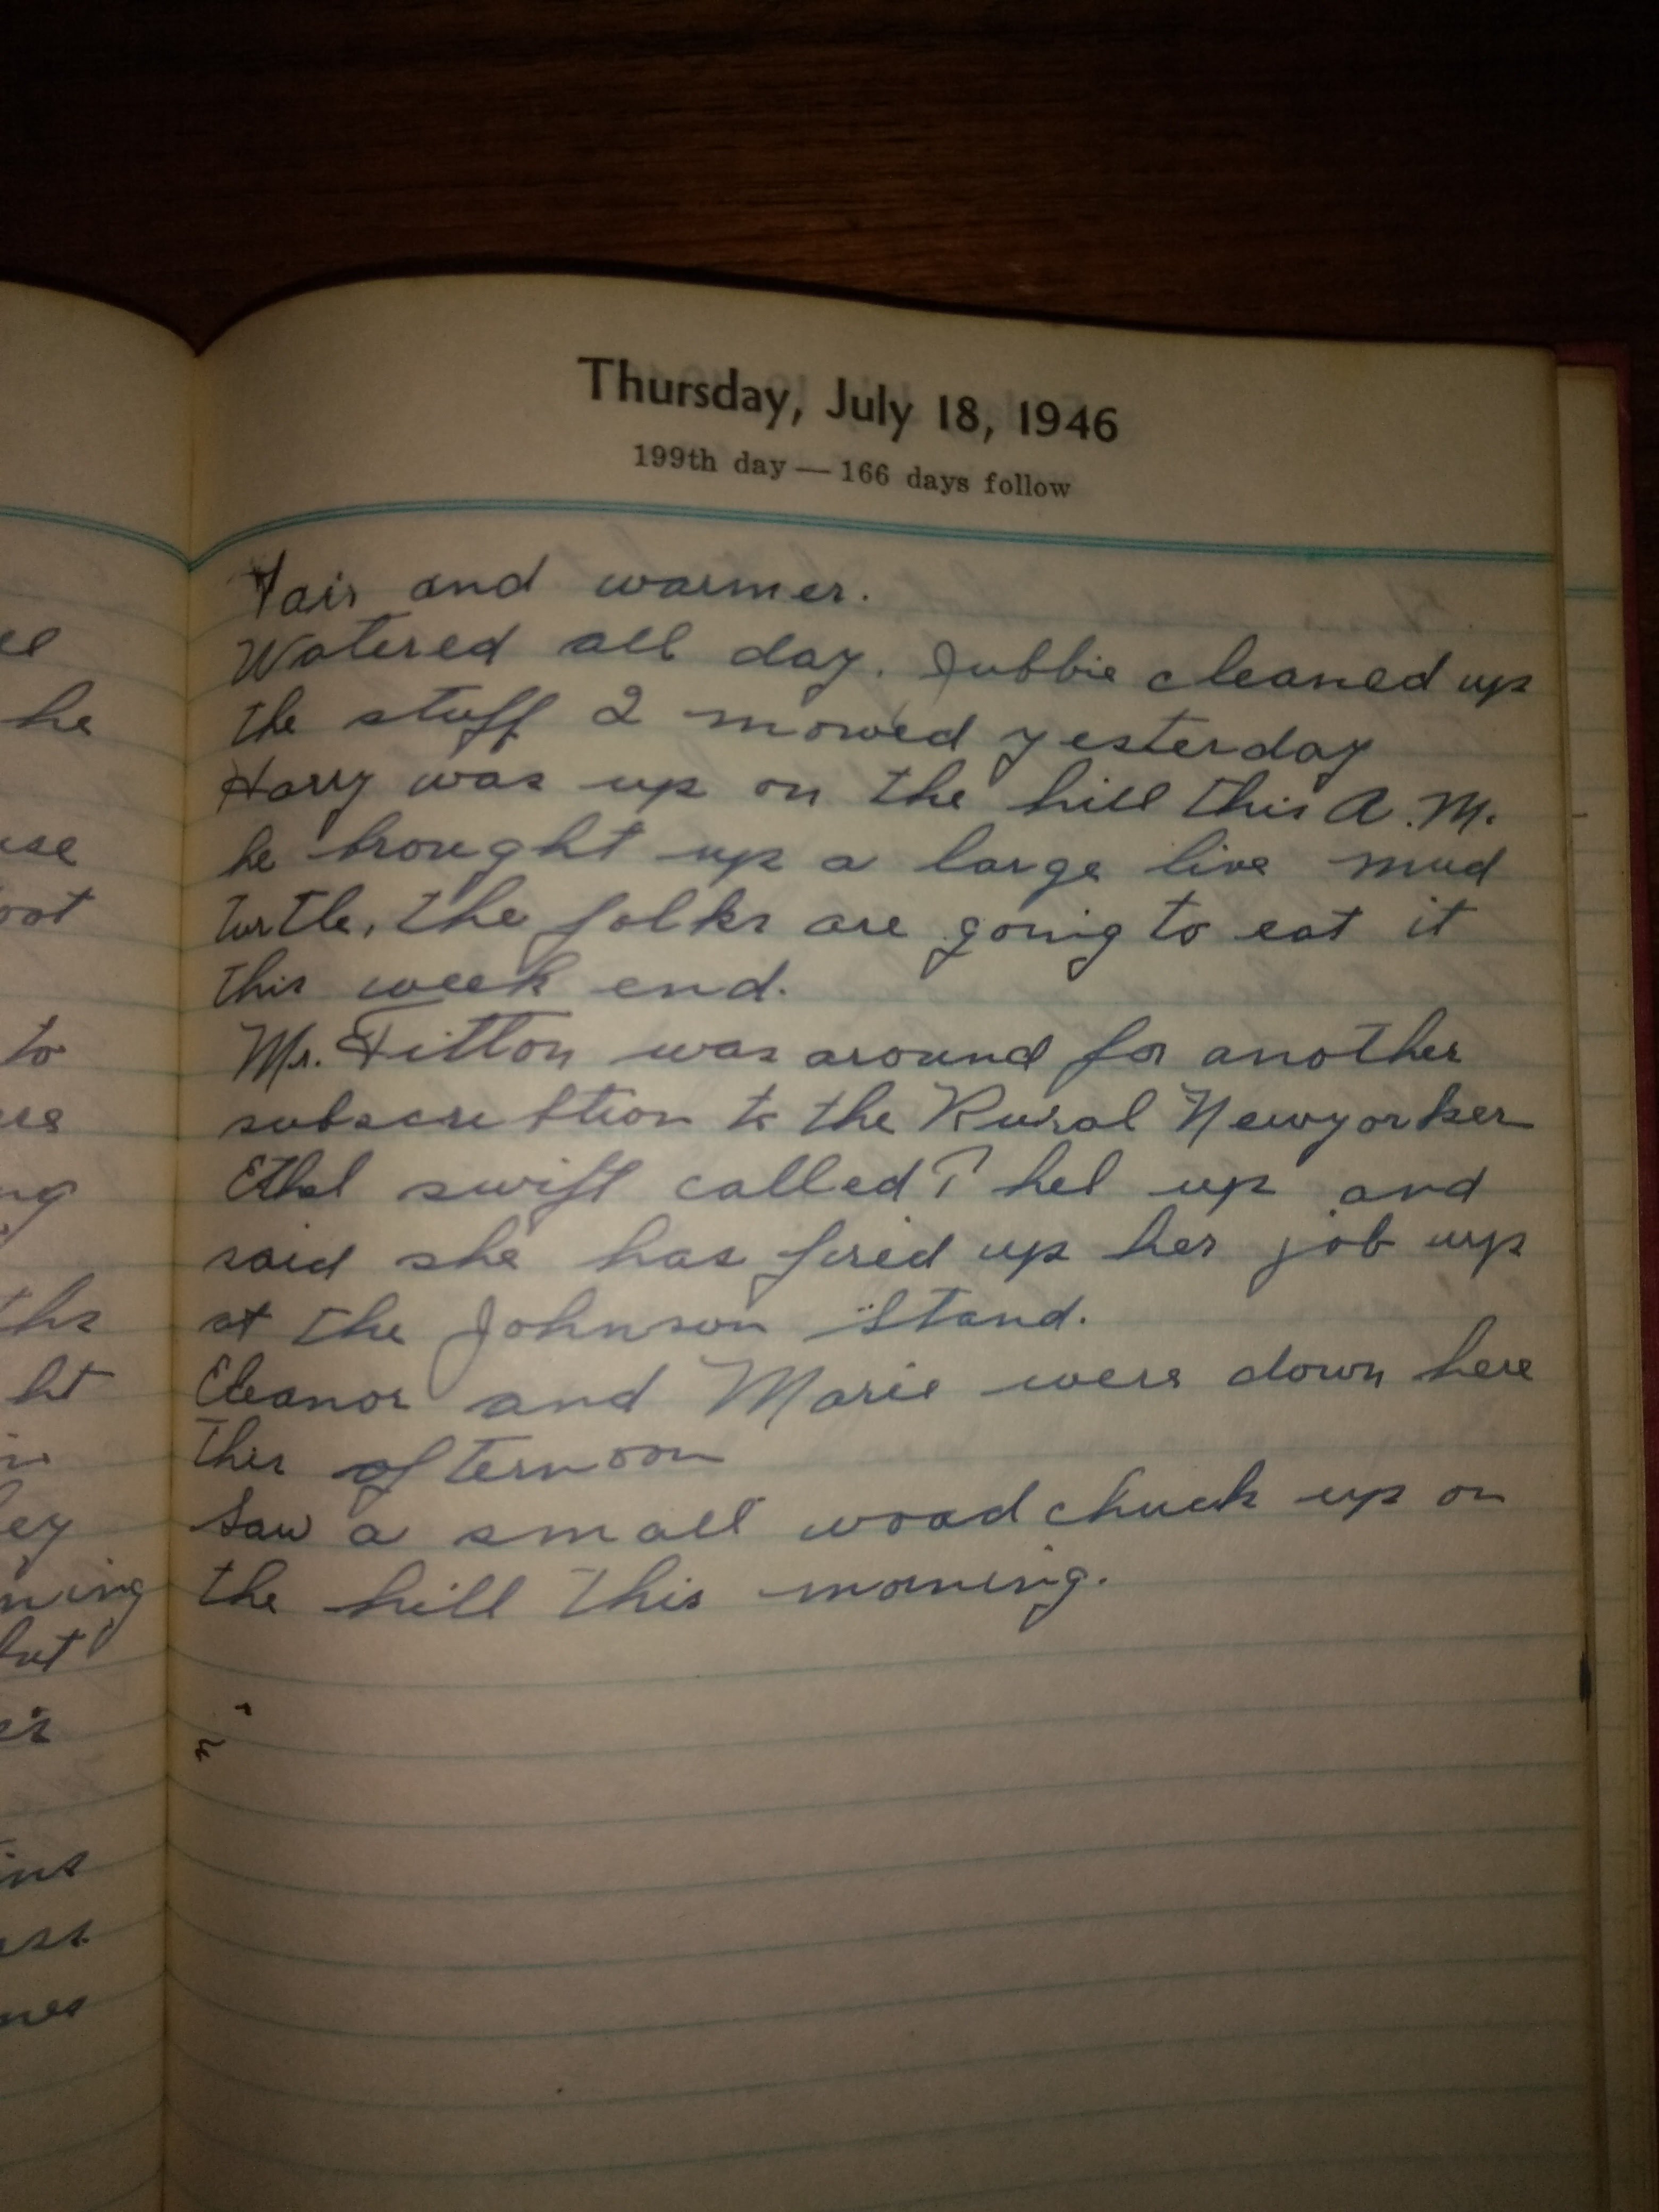 Thursday, July 18, 1946
199th day — 166 days follow
Fair and warmer.
Watered all day. Jubbie cleaned up
the stuff I mowed yesterday
Harry was up on the hill this A.M.
he brought up a large live mud
turtle, the folks are going to eat it
this week end.
Mr. Fitton was around for another
subscribtion to the Rural Newyorker
Ethel swift called up and
said she has fired up her job up
at the Johnson Stand.
Eleanor and Marie were down here
this afternoon
Saw a small woodchuck up on
the hill this morning.
el
he
use
oot
to
ers
ng
ths
ht
ey
ning
but
ins
ess
mes